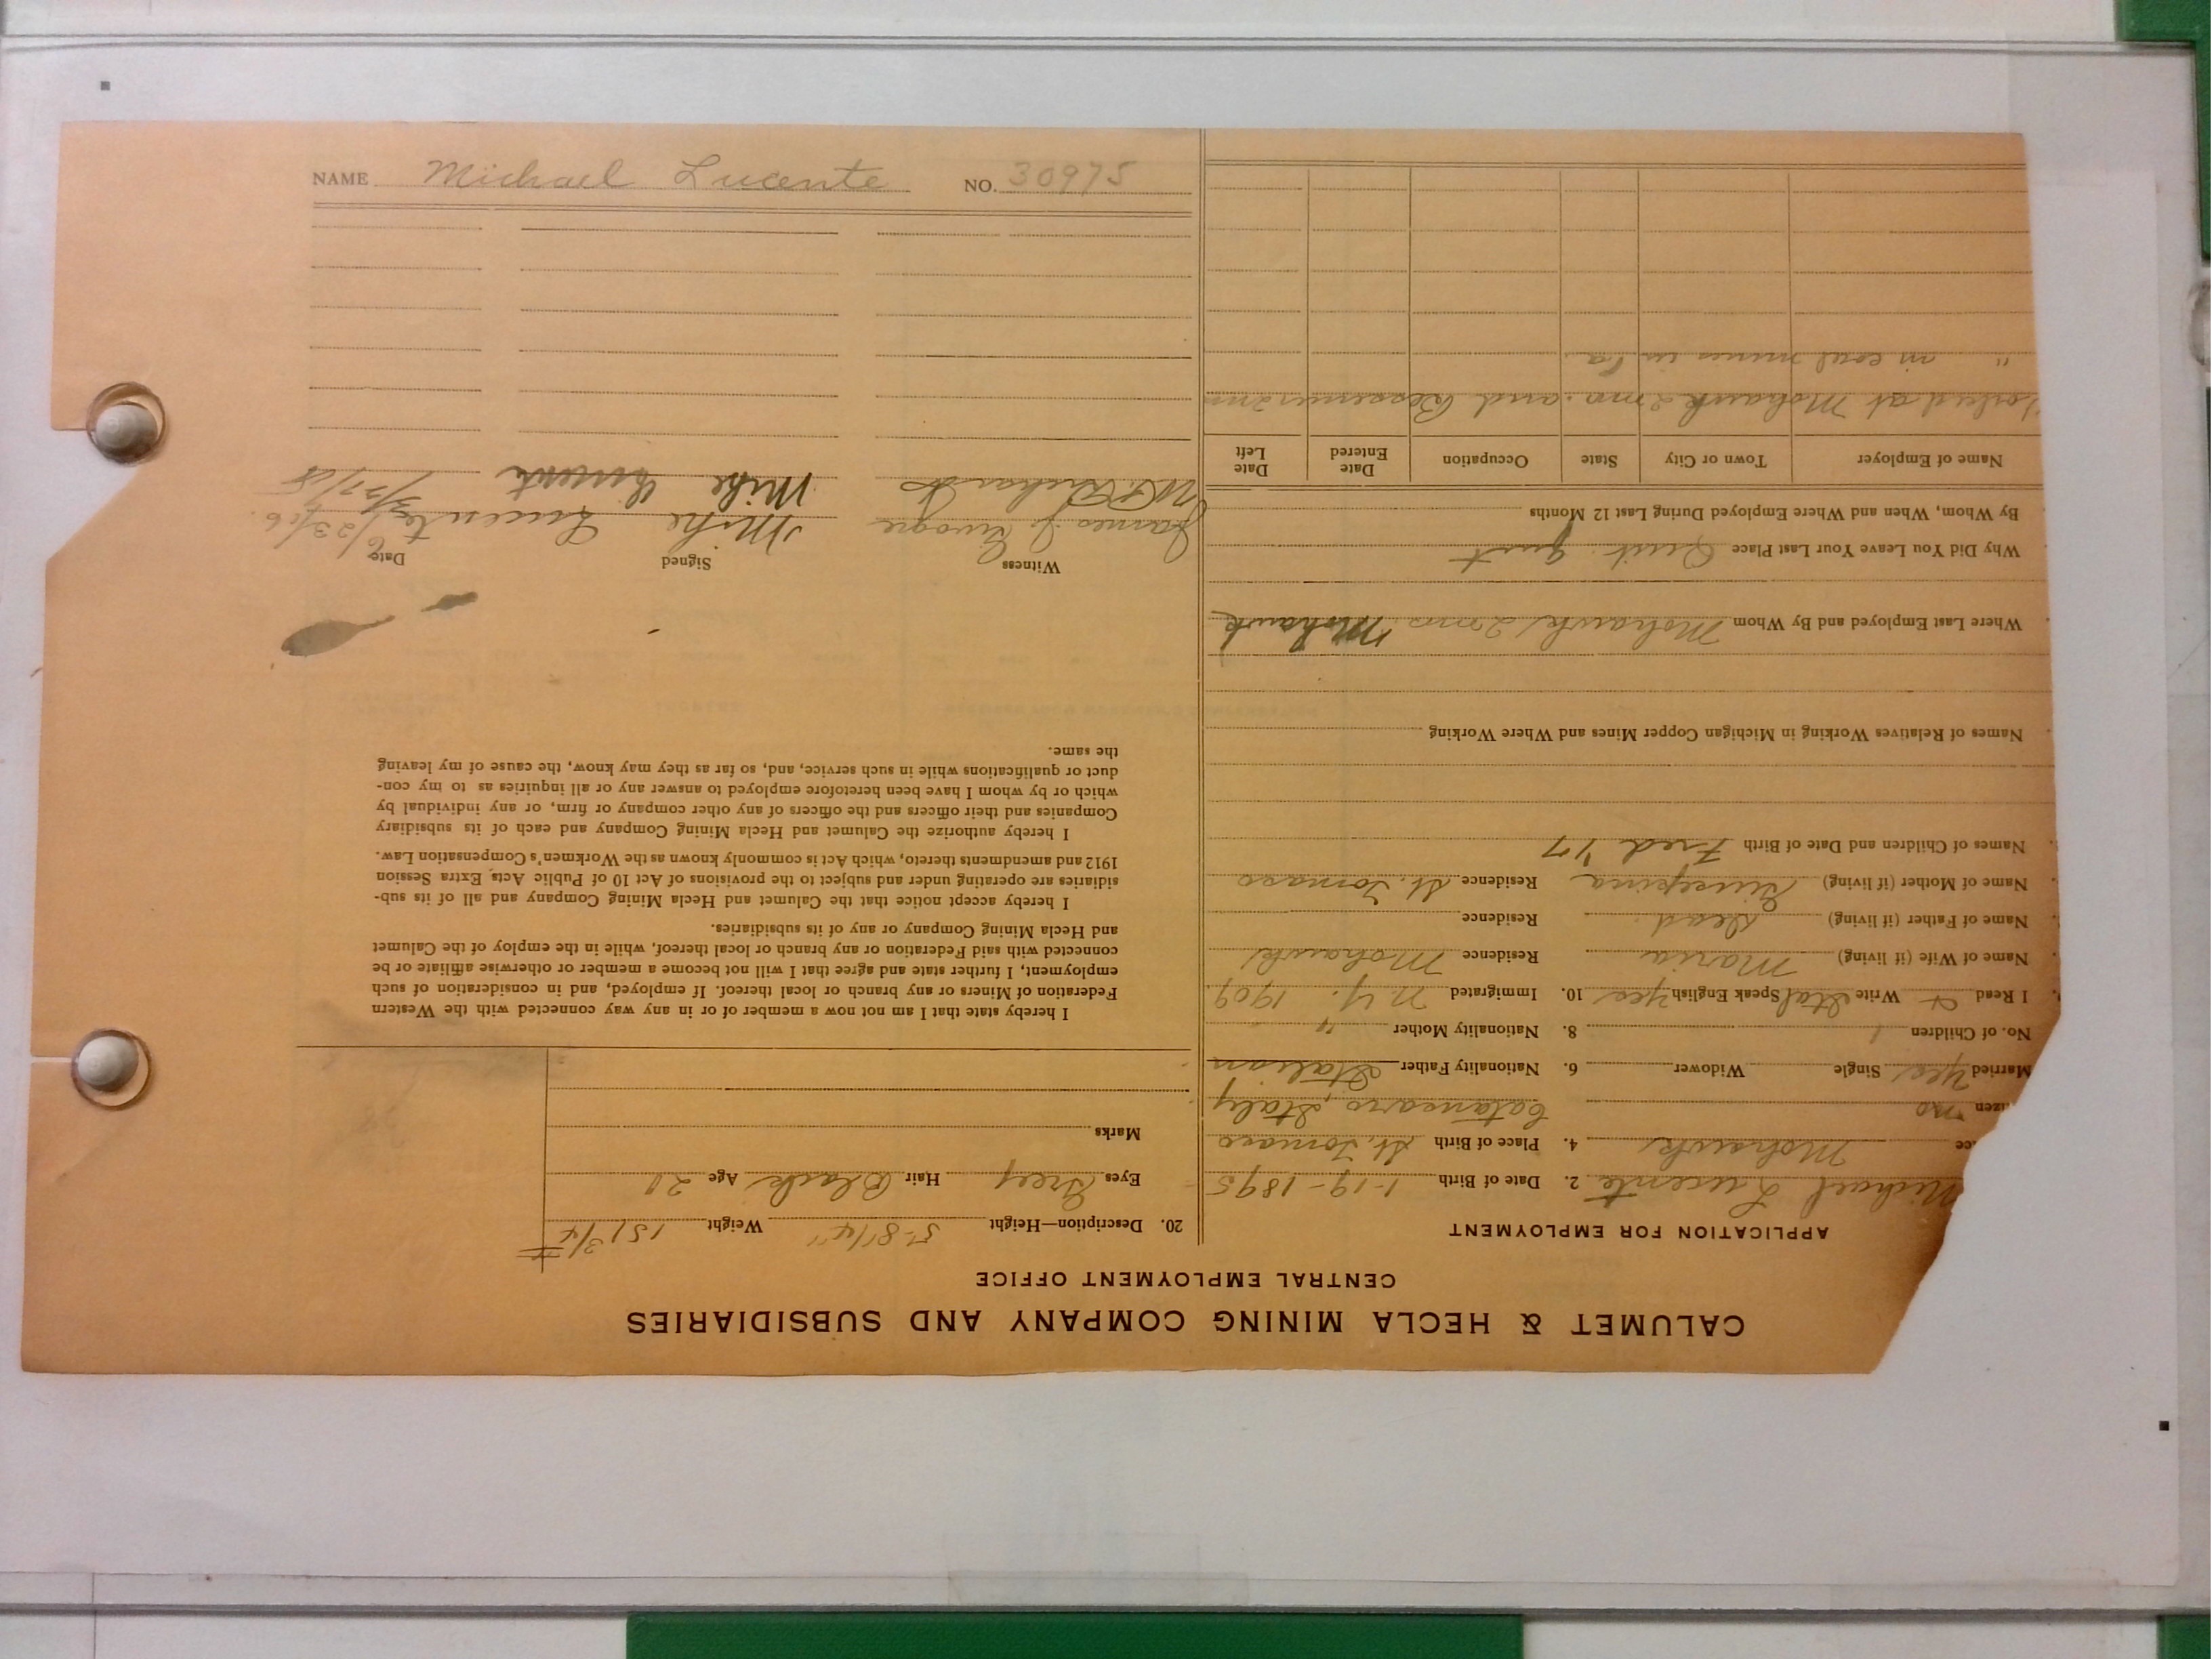 NAME Michael Lucente NO. 30975
CALUMET & HECLA MINING COMPANY AND SUBSIDIARIES
CENTRAL EMPLOYMENT OFFICE
APPLICATION FOR EMPLOYMENT
Michael Lucente 2. Date of Birth 1-19-1895
Mohawk 4. Place of Birth St. Tomaso
no Catanzaro, Italy
Married yes Single Widower 6. Nationality Father Italian
No. of Children 1 8. Nationality Mother "
I Read & Write Ital Speak English yes 10. Immigrated N.Y. 1909
Name of Wife (if living) Maria Residence Mohawk
Name of Father (if living) dead. Residence
Name of Mother (if living) Residence St. Tomaso
Names of Children and Date of Birth Fred
Names of Relatives Working in Michigan Copper Mines and Where Working
Where Last Employed and By Whom Mohawk 2 mos. Mohawk
Why Did You Leave Your Last Place Quit. quit
By Whom, When and Where Employed During Last 12 Months
Name of Employer Town or City State Occupation Date Entered Date Left
at Mohawk 2 mo. and Bessemer 2 mo
" in coal mines in Pa.
20. Description—Height 5'-8 1/4" Weight 151 3/4 #
Eyes Grey Hair Black Age
Marks
I hereby state that I am not now a member of or in any way connected with the Western
Federation of Miners or any branch or local thereof. If employed, and in consideration of such
employment, I further state and agree that I will not become a member or otherwise affiliate or be
connected with said Federation or any branch or local thereof, while in the employ of the Calumet
and Hecla Mining Company or any of its subsidiaries.
I hereby accept notice that the Calumet and Hecla Mining Company and all of its sub-
sidiaries are operating under and subject to the provisions of Act 10 of Public Acts, Extra Session
1912 and amendments thereto, which Act is commonly known as the Workmen's Compensation Law.
I hereby authorize the Calumet and Hecla Mining Company and each of its subsidiary
Companies and their officers and the officers of any other company or firm, or any individual by
which or by whom I have been heretofore employed to answer any or all inquiries as to my con-
duct or qualifications while in such service, and, so far as they may know, the cause of my leaving
the same.
Witness Signed Date
James J. Mike Lucente 6/23/16.
Mike 3/27/18